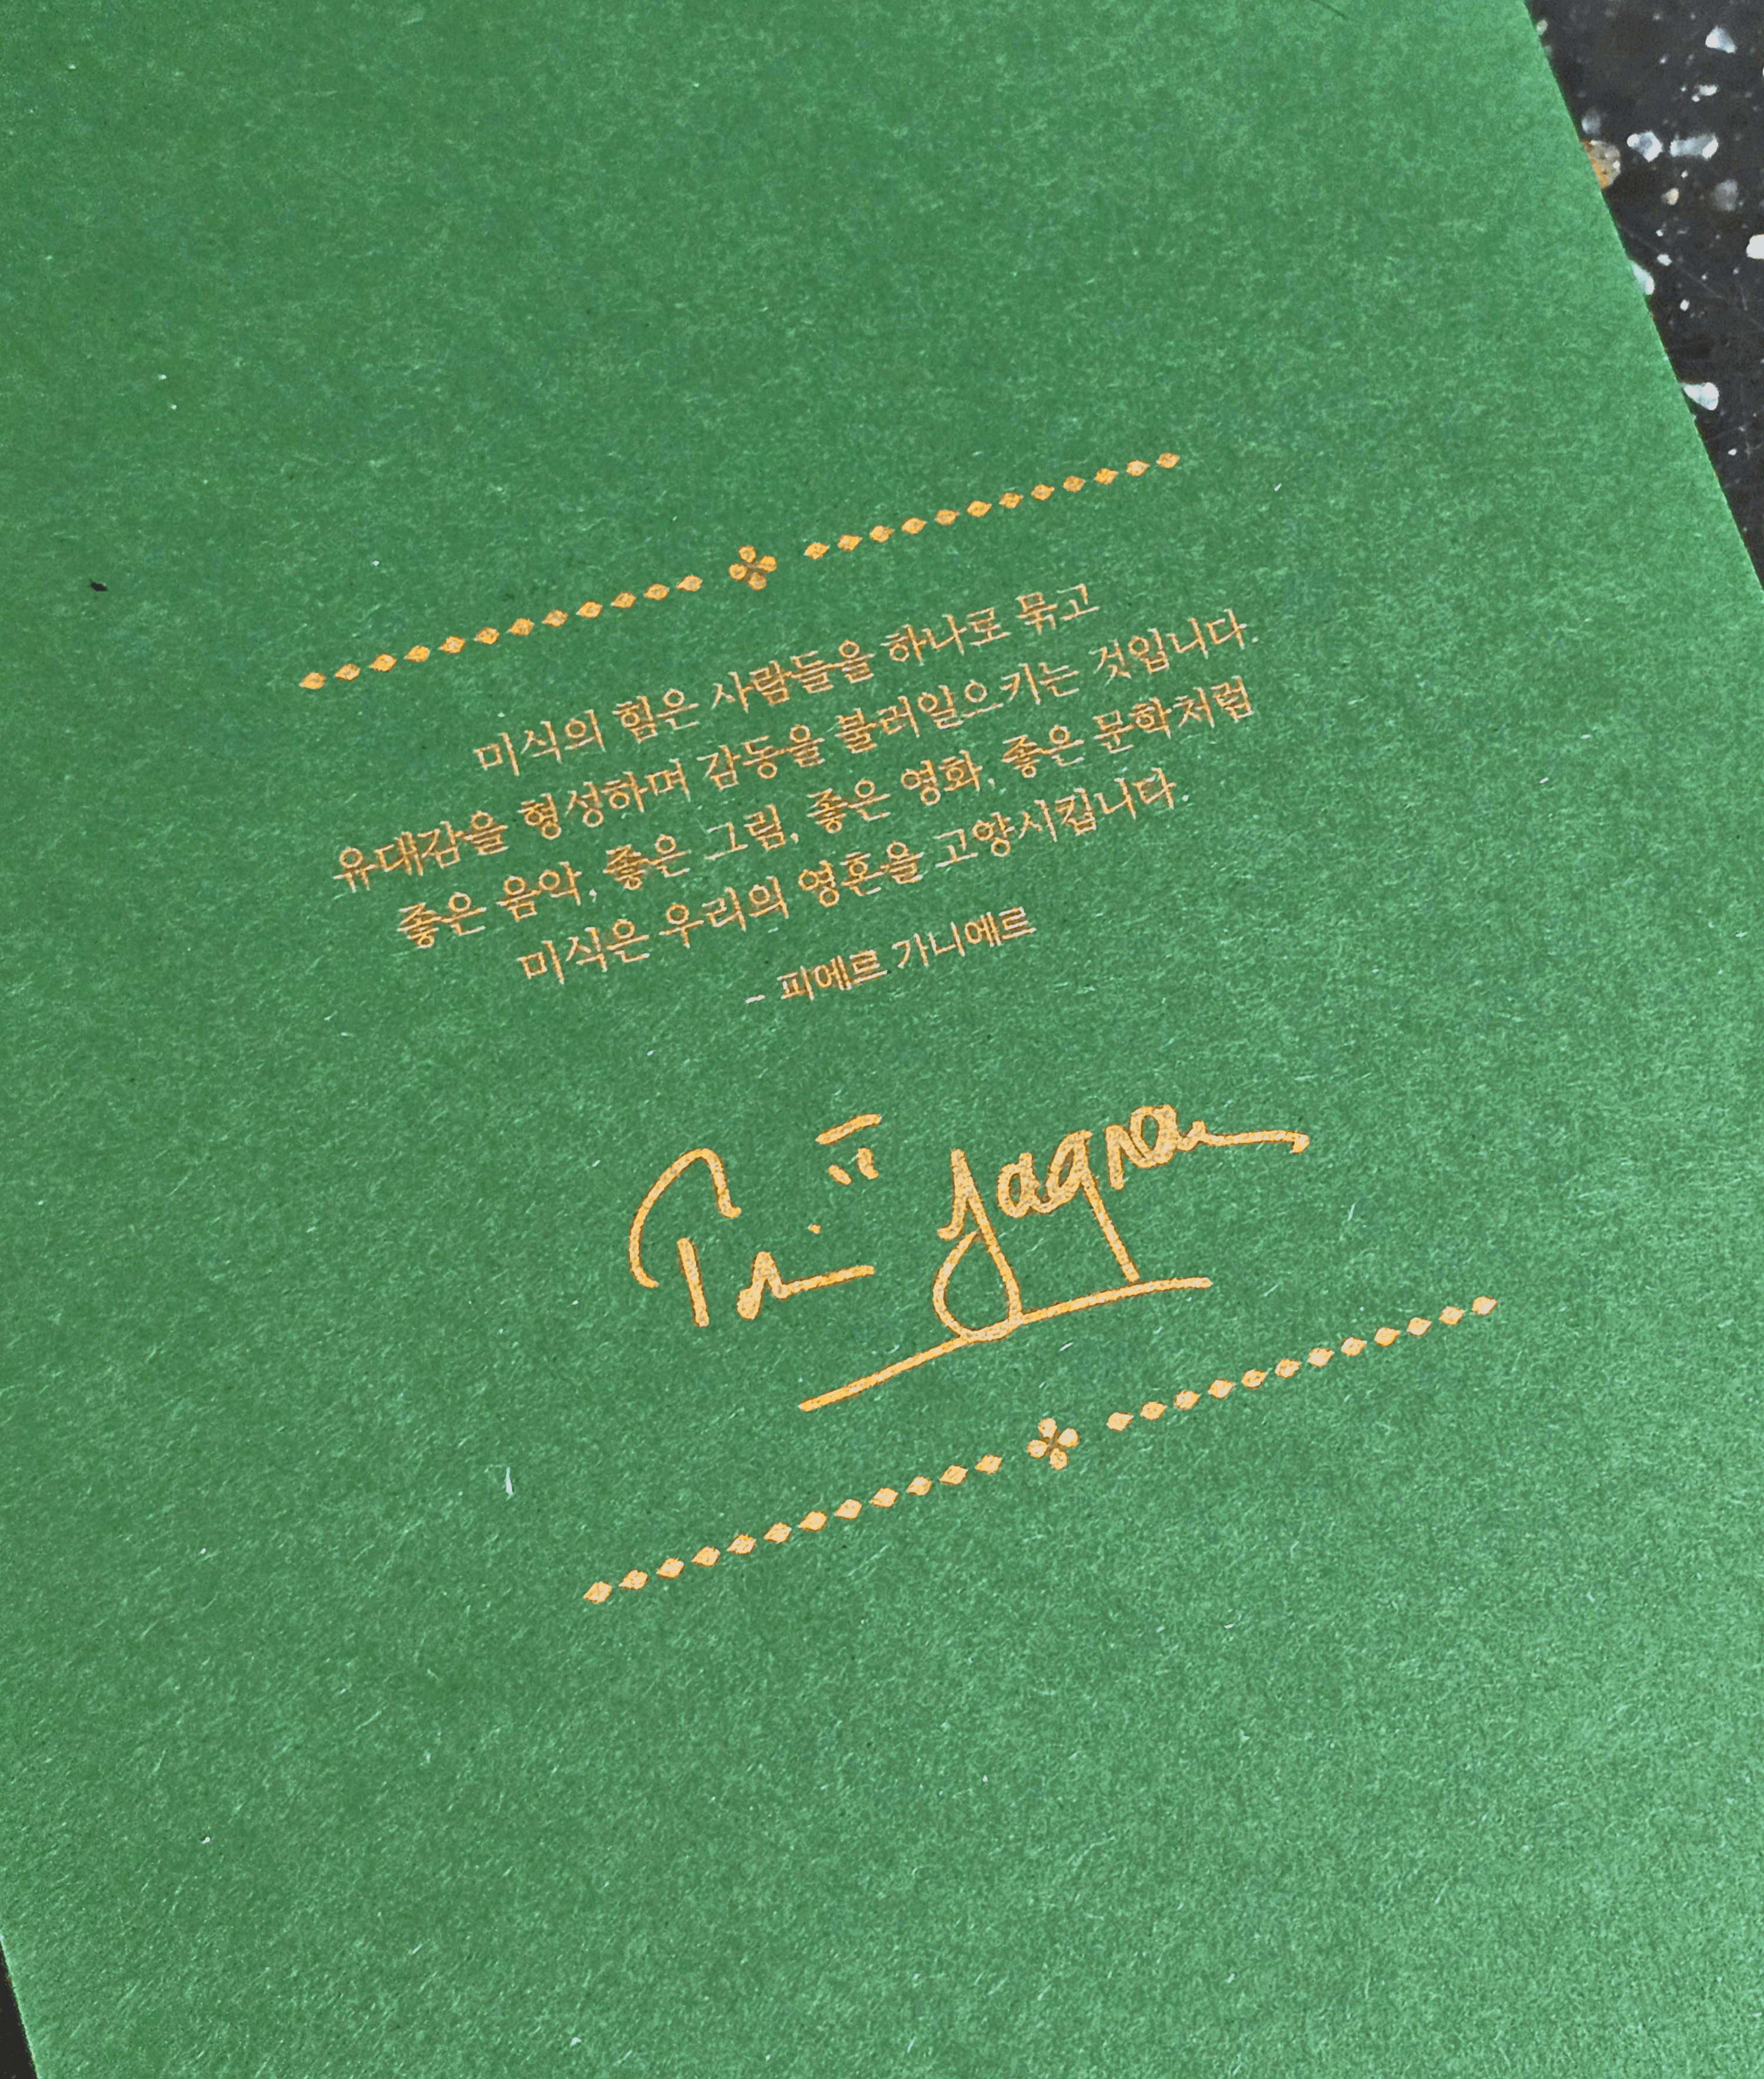 미식의 힘은 사람들을 하나로 묶고
유대감을 형성하며 감동을 불러일으키는 것입니다.
좋은 음악, 좋은 그림, 좋은 영화, 좋은 문학처럼
미식은 우리의 영혼을 고양시킵니다.
- 피에르 가니에르